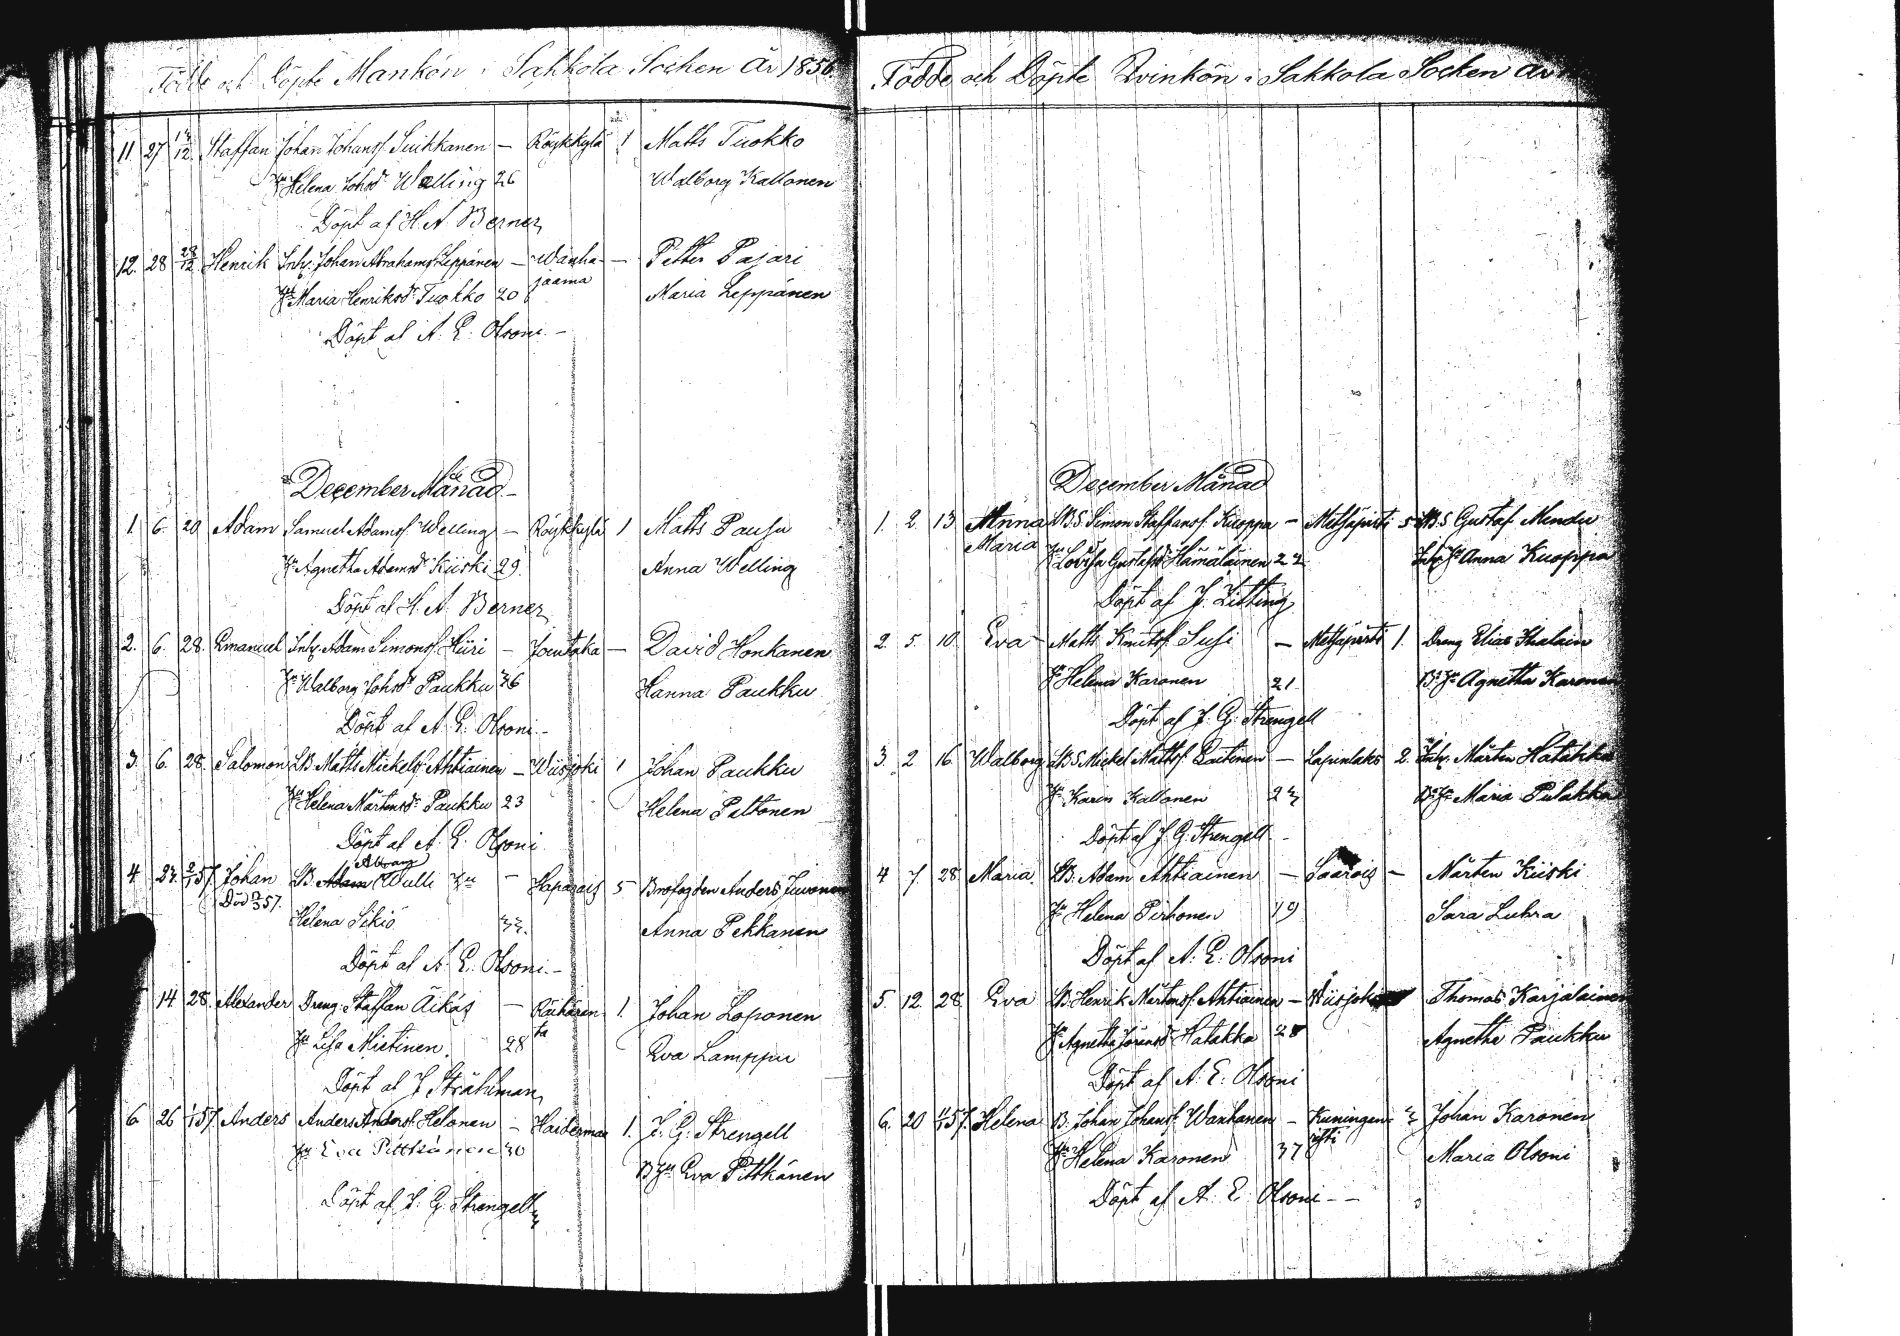 Födde och Döpte Mankön i Sakkola Socken År 1856.
11 27 14/12 Staffan Johan Johansf. Suikkanen — Röykkylä 1 Matts Tuokko
Hu Helena Johsdr Welling 26 Walborg Kallonen
Döpt af H. A. Berner
12. 28 28/12 Henrik Inh. Johan Abrahamsf. Leppänen — Wanha- — Petter Pajari
jaama
Hu Maria Henriksdr Tuokko 20 Maria Leppänen
Döpt af A. E. Olsoni —
December Månad —
1. 6. 20 Adam Samuel Adamsf. Welling — Röykkylä 1 Matts Pausu
Hu Agnetha Adamsdr Kiiski 29. Anna Welling
Döpt af H. A. Berner
2. 6. 28. Emanuel Inh. Adam Simonsf. Hiiri — Joutaka — David Honkanen
Hu Walborg Johsdr Paukku 36 Hanna Paukku
Döpt af A. E. Olsoni. —
3. 6. 28. Salomon LB. Matts Mickelsf. Ahtiainen — Wiisjoki 1 Johan Paukku
Hu Helena Mårtensdr Paukku 23 Helena Peltonen
Döpt af A. E. Olsoni
Abram
4. 23. 2/1 57. Johan LB. Adam Wulli Hu — Haparais 5 Brofogden Anders Juvonen
Död 57.
Helena Sikiö 33. Anna Pekkanen
Döpt af A. E. Olsoni. —
14 28. Alexander Dreng Staffan Äikäs — Räihäran- 1. Johan Loponen
ta
Hu Lisa Mietinen. 28 Eva Lamppu
Döpt af J Stråhlman
6. 26 1/1 57. Anders Anders Andersf. Helonen — Haiderman 1. J. G. Strengell
Hu Eva Pittkänen 30 B Hu Eva Pittkänen
Döpt af J. G. Strengell
Födde och Döpte Qvinkön i Sakkola Socken År
December Månad
1. 2. 13 Anna LB.S. Simon Staffansf. Kuoppa — Metsäpirti 5 LB.S Gustaf Mendu
Maria Hu Lovisa Gustafsdr Hämäläinen 22 Inh. Hu Anna Kuoppa
Döpt af J. Zitting
2. 5. 10. Eva — Matts Knutsf. Susi — Metsäpirti 1. Dreng Elias Ihalain
Hu Helena Karonen 21. B. Hu Agnetha Karonen
Döpt af J. G. Strengell
3. 2 16 Walborg LB S Mickel Mattsf. Rautinen — Lapinlaks 2. Inh. Mårten Hatakka
Hu Karin Kallonen 23 B. Hu Maria Pulakka
Döpt af J. G. Strengell —
4 7. 28. Maria. LB. Adam Ahtiainen — Saarois — Mårten Kiiski
Hu Helena Pirhonen 19 Sara Luhra
Döpt af A. E. Olsoni
5. 12. 28. Eva LB. Henrik Mårtensf. Ahtiainen — Wiisjoki Thomas Karjalainen
Hu Agnetha Göransdr Hatakka 28 Agnetha Paukku
Döpt af A. E. Olsoni
6. 20 57. Helena B. Johan Johansf. Wanhanen — Kuningan- 3 Johan Karonen
risti
Hu Helena Karonen 37 Maria Olsoni
Döpt af A. E. Olsoni — —